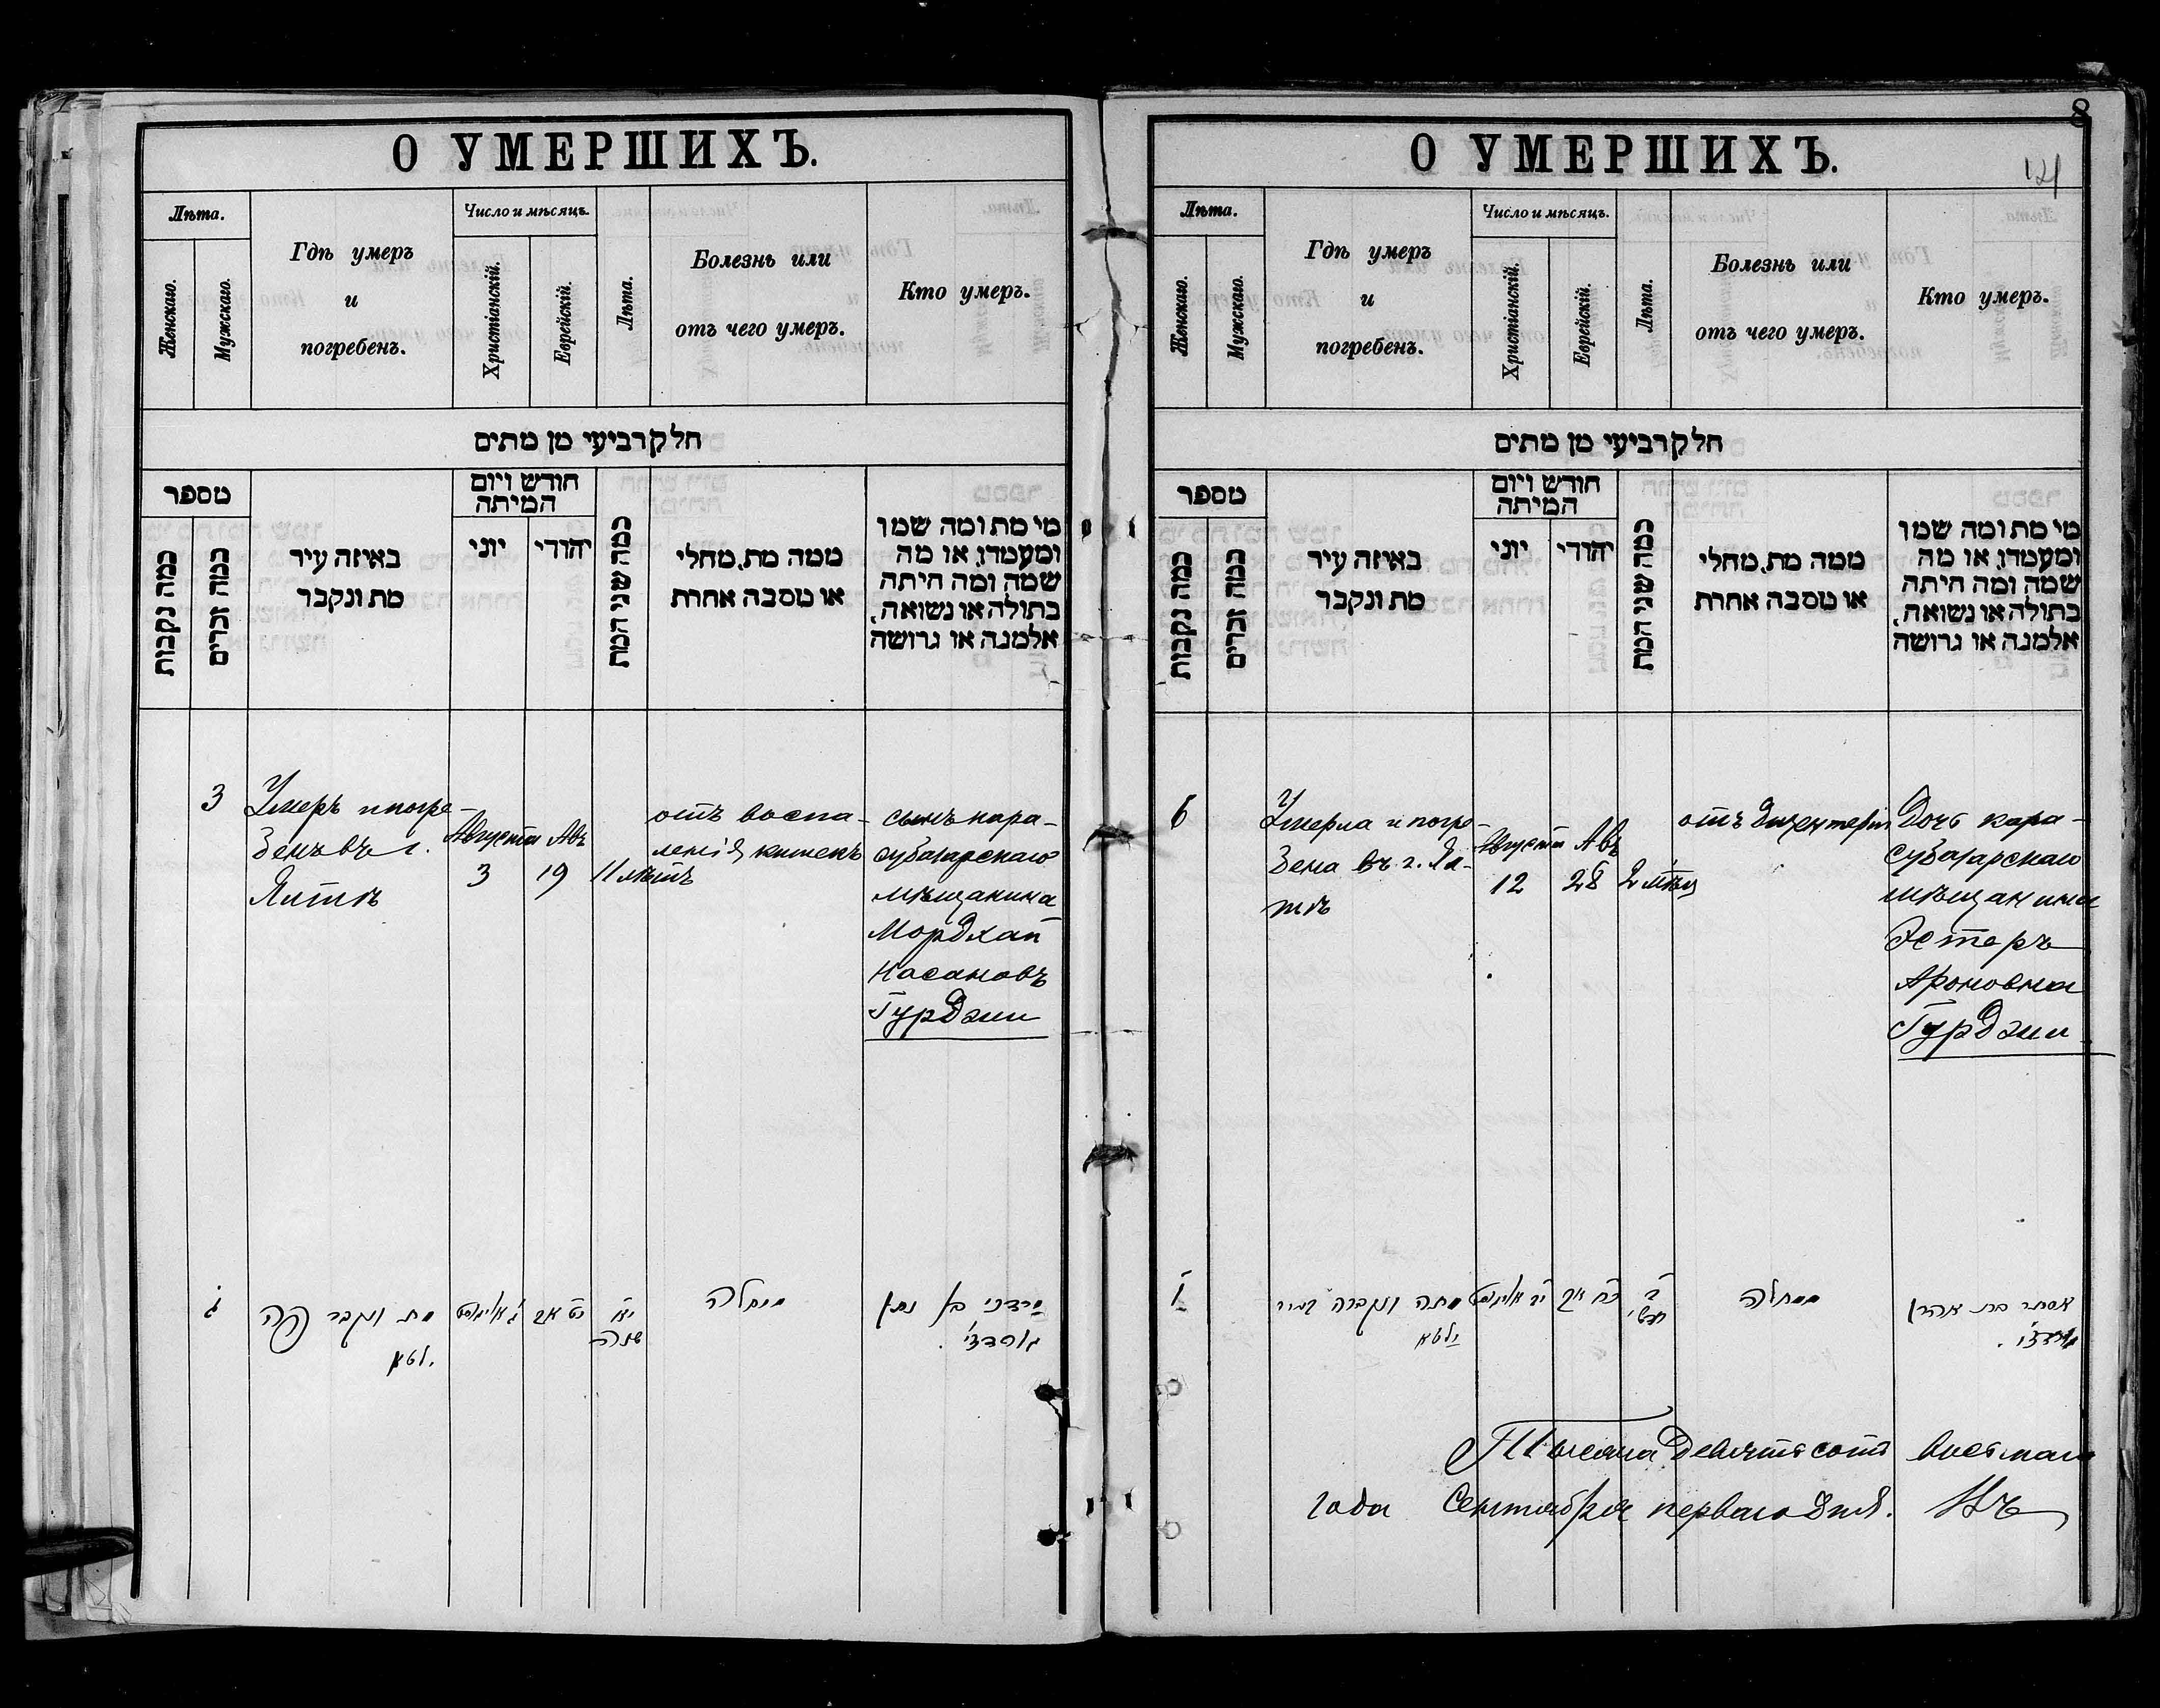 О УМЕРШИХЪ.
Лѣта.
Женскаго.
Мужскаго.
Гдѣ умеръ
и
погребенъ.
Число и мѣсяцъ.
Христіанскій.
Еврейскій.
Лѣта.
Болезнь или
отъ чего умеръ.
Кто умеръ.
חלק רביעי מן מתים
מספר
כמה נקבות
כמה זכרים
באיזה עיר
מת ונקבר
חודש ויום
המיתה
יוני
יהודי
כמה שני המת
ממה מת, מחלי
או מסבה אחרת
מי מת ומה שמו
ומעמדו, או מה
שמה ומה היתה
בתולה או נשואה,
אלמנה או גרושה
3
Умеръ и погре-
бенъ въ г.
Ялтѣ
Августа
3
Авъ
19
11 лѣтъ
отъ воспа-
ленія кишекъ
сынъ кара-
субазарскаго
мѣщанина
Мордхай
Насановъ
Гурджи
ג
מת ונקבר פה
ילטא
ג אויגוסט
יט אב
יא
שנה
מחלה
מרדכי בן נתן
גורדזי
О УМЕРШИХЪ.
8
121
Лѣта.
Женскаго.
Мужскаго.
Гдѣ умеръ
и
погребенъ.
Число и мѣсяцъ.
Христіанскій.
Еврейскій.
Лѣта.
Болезнь или
отъ чего умеръ.
Кто умеръ.
חלק רביעי מן מתים
מספר
כמה נקבות
כמה זכרים
באיזה עיר
מת ונקבר
חודש ויום
המיתה
יוני
יהודי
כמה שני המת
ממה מת, מחלי
או מסבה אחרת
מי מת ומה שמו
ומעמדו, או מה
שמה ומה היתה
בתולה או נשואה,
אלמנה או גרושה
6
Умерла и погре-
бена въ г. Ял-
тѣ
Августа
12
Авъ
28
2 мѣсц
отъ дизентеріи
Дочь кара-
субазарскаго
мѣщанина
Эстеръ
Ароновна
Гурджи
ו
מתה ונקברה בעיר
ילטא
יב אויגוסט
כח אב
ב
חדשי
מחלה
אסתר בת אהרן
גורדזי.
Тысяча девятьсотъ восьмаго
года Сентября перваго дня. Въ